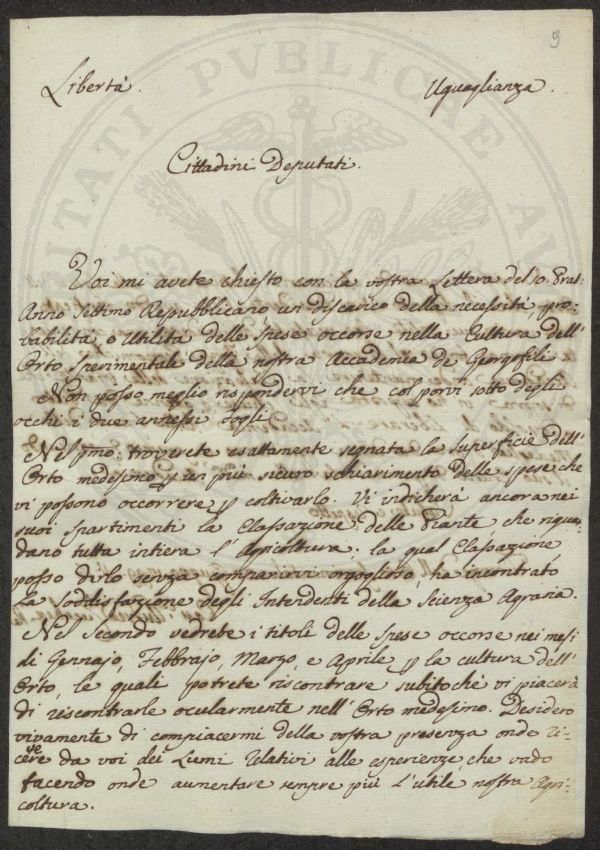 9
Libertà. Uguaglianza.
Cittadini Deputati.
Voi mi avete chiesto con la vostra Lettera del 10. Pral:
Anno Settimo Repubblicano un discarico della necessità, pro:
babilità, o Utilità delle spese occorse nella Cultura dell'
Orto sperimentale della nostra Accademia de Georgofili
Non posso meglio rispondervi che col porvi sotto degli
occhi i due annessi fogli
Nel pmo: troverete esattamente segnata la superficie dell'
Orto medesimo p un più sicuro schiarimento delle spese che
vi possono occorrere p coltivarlo. Vi indicherà ancora nei
suoi spartimenti la Classazione delle Piante che rigua:
dano tutta intiera l'agricoltura: la qual Classazione
posso dirlo senza comparirvi orgoglioso, ha incontrato
la soddisfazione degli Intendenti della Scienza Agraria.
Nel secondo vedrete i titoli delle spese occorse nei mesi
di Gennajo, Febbrajo, Marzo, e Aprile p la cultura dell'
Orto, le quali potrete riscontrare subitochè vi piacerà
di riscontrarle ocularmente nell'Orto medesimo. Desidero
vivamente di compiacermi della vostra presenza onde ri:
cevere da voi dei Lumi relativi alle esperienze, che vado
facendo onde aumentare sempre più l'utile nostra Agri:
coltura.
PVBLICAE